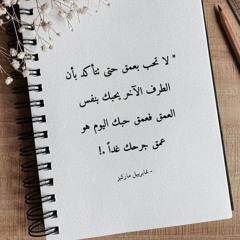 " لا تحب بعمق حتى تتأكد بأن
الطرف الآخر يحبك بنفس
العمق فعمق حبك اليوم هو
عمق جرحك غداً .!
- غابرييل ماركيز